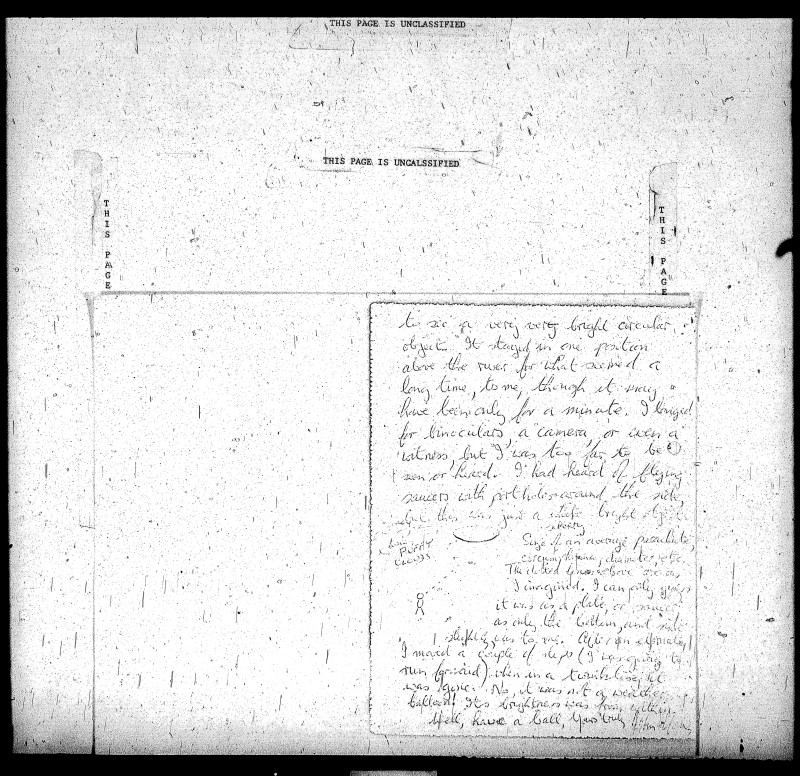 THIS PAGE IS UNCLASSIFIED
THIS PAGE IS UNCALSSIFIED
THIS PAGE
THIS PAGE
to see a very very bright circular
object. It stayed in one position
above the river for what seemed a
long time, to me, though it may
have been only for a minute. I longed
for binoculars, a camera, or even a
witness, but I was too far to be
seen or heard. I had heard of flying
saucers with port holes around the side
but this was just a white bright object.
Puffy
Clouds
Size of an average parachute,
circumference, diameter, etc.
The dotted lines above are as
I imagined. I can only guess
it was as a plate, or saucer
as only the bottom and side
slightly was to me. After
I moved a couple of steps (I was going to
run forward) when in a twinkling it
was gone. No, it was not a weather
balloon! Its brightness was from within.
Well, have a ball. Yours truly